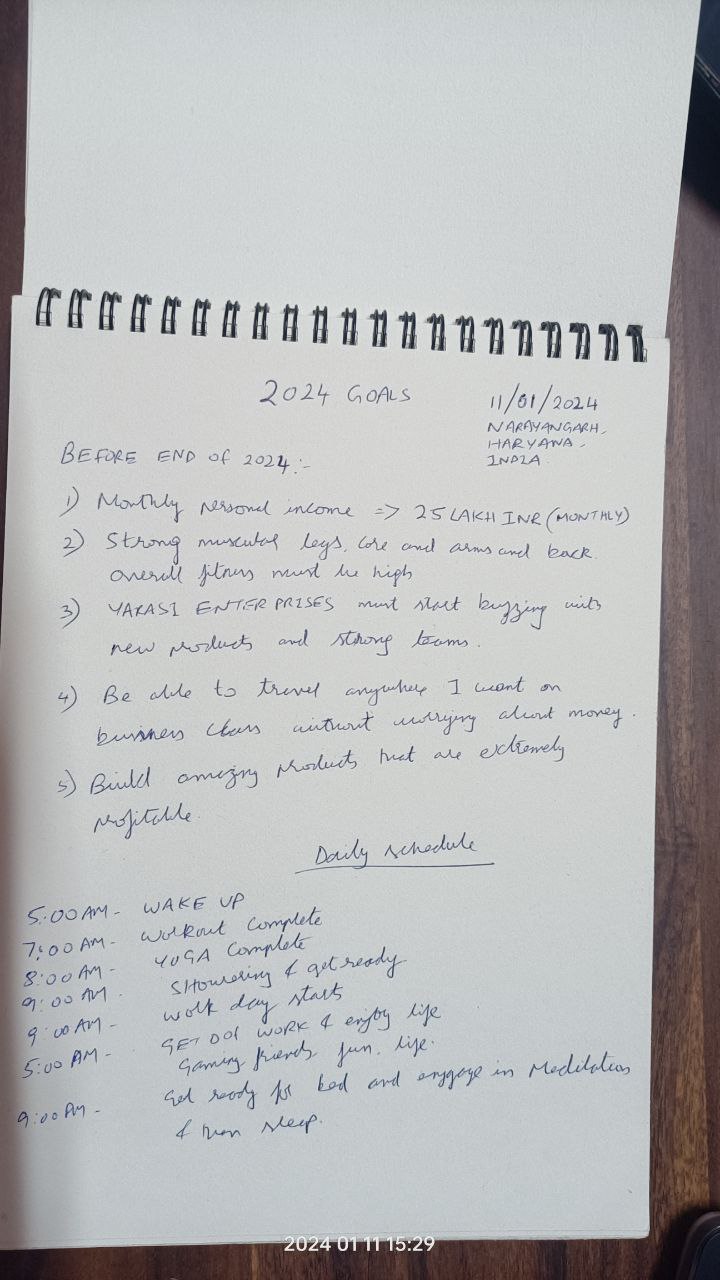 2024 GOALS
11/01/2024
NARAYANGARH,
HARYANA,
INDIA.
BEFORE END OF 2024:-
1) Monthly personal income => 25 LAKH INR (MONTHLY)
2) Strong muscular legs, core and arms and back.
overall fitness must be high
3) YAKASI ENTERPRISES must start buzzing with
new products and strong teams.
4) Be able to travel anywhere I want on
business class without worrying about money.
5) Build amazing products that are extremely
profitable.
Daily schedule
5:00 AM - WAKE UP
7:00 AM - Workout Complete
8:00 AM - YOGA Complete
9:00 AM - Showering & get ready
9:00 AM - Work day starts
5:00 PM - GET WORK & enjoy life
Gaming, friends, fun, life.
9:00 PM - Get ready for bed and enggage in Meditation
& then sleep.
2024 01 11 15:29